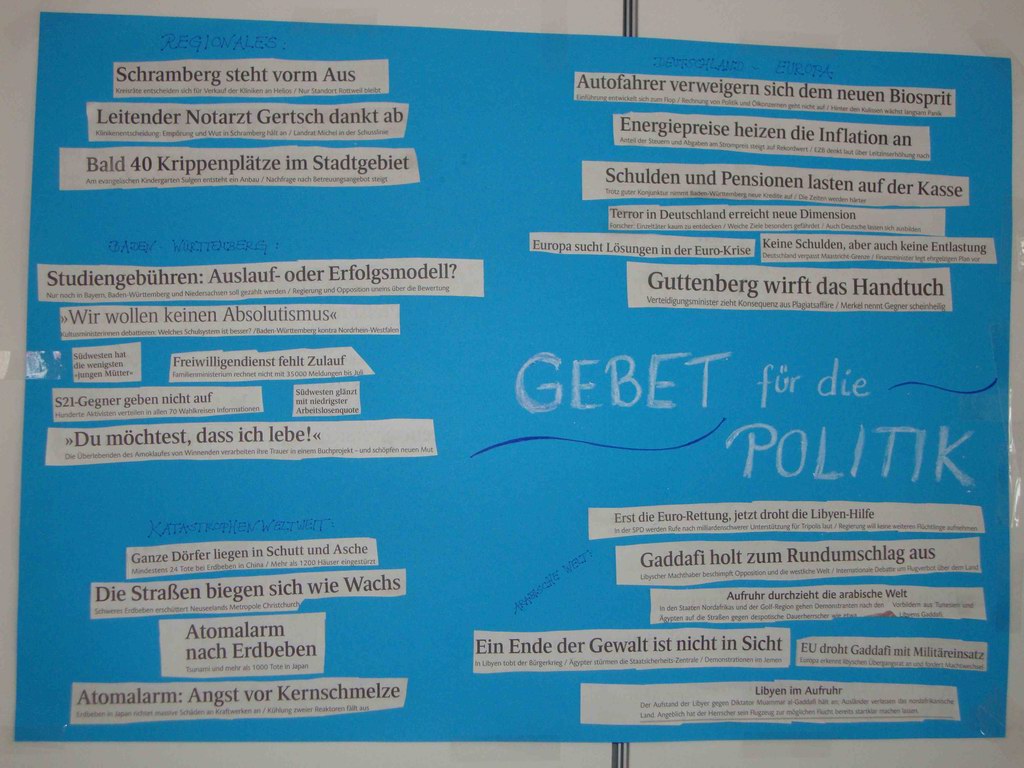 REGIONALES:
Schramberg steht vorm Aus
Kreisräte entscheiden sich für Verkauf der Kliniken an Helios / Nur Standort Rottweil bleibt
Leitender Notarzt Gertsch dankt ab
Klinikenentscheidung: Empörung und Wut in Schramberg hält an / Landrat Michel in der Schusslinie
Bald 40 Krippenplätze im Stadtgebiet
Am evangelischen Kindergarten Sulgen entsteht ein Anbau / Nachfrage nach Betreuungsangebot steigt
BADEN-WÜRTTEMBERG:
Studiengebühren: Auslauf- oder Erfolgsmodell?
Nur noch in Bayern, Baden-Württemberg und Niedersachsen soll gezahlt werden / Regierung und Opposition uneins über die Bewertung
»Wir wollen keinen Absolutismus«
Kultusministerinnen debattieren: Welches Schulsystem ist besser? / Baden-Württemberg kontra Nordrhein-Westfalen
Südwesten hat
die wenigsten
»jungen Mütter«
Freiwilligendienst fehlt Zulauf
Familienministerium rechnet nicht mit 35000 Meldungen bis Juli
S21-Gegner geben nicht auf
Hunderte Aktivisten verteilen in allen 70 Wahlkreisen Informationen
Südwesten glänzt
mit niedrigster
Arbeitslosenquote
»Du möchtest, dass ich lebe!«
Die Überlebenden des Amoklaufes von Winnenden verarbeiten ihre Trauer in einem Buchprojekt – und schöpfen neuen Mut
KATASTROPHEN WELTWEIT:
Ganze Dörfer liegen in Schutt und Asche
Mindestens 24 Tote bei Erdbeben in China / Mehr als 1200 Häuser eingestürzt
Die Straßen biegen sich wie Wachs
Schweres Erdbeben erschüttert Neuseelands Metropole Christchurch
Atomalarm
nach Erdbeben
Tsunami und mehr als 1000 Tote in Japan
Atomalarm: Angst vor Kernschmelze
Erdbeben in Japan richtet massive Schäden an Kraftwerken an / Kühlung zweier Reaktoren fällt aus
DEUTSCHLAND - EUROPA
Autofahrer verweigern sich dem neuen Biosprit
Einführung entwickelt sich zum Flop / Rechnung von Politik und Ökonomen geht nicht auf / Hinter den Kulissen wächst langsam Panik
Energiepreise heizen die Inflation an
Anteil der Steuern und Abgaben am Strompreis steigt auf Rekordwert / EZB denkt laut über Leitzinserhöhung nach
Schulden und Pensionen lasten auf der Kasse
Trotz guter Konjunktur nimmt Baden-Württemberg neue Kredite auf / Die Zeiten werden härter
Terror in Deutschland erreicht neue Dimension
Forscher: Einzeltäter kaum zu entdecken / Weiche Ziele besonders gefährdet / Auch Deutsche lassen sich ausbilden
Europa sucht Lösungen in der Euro-Krise
Keine Schulden, aber auch keine Entlastung
Deutschland verpasst Maastricht-Grenze / Finanzminister legt ehrgeizigen Plan vor
Guttenberg wirft das Handtuch
Verteidigungsminister zieht Konsequenz aus Plagiatsaffäre / Merkel nennt Gegner scheinheilig
GEBET für die
POLITIK
ARABISCHE WELT:
Erst die Euro-Rettung, jetzt droht die Libyen-Hilfe
In der SPD werden Rufe nach milliardenschwerer Unterstützung für Tripolis laut / Regierung will keine weiteren Flüchtlinge aufnehmen
Gaddafi holt zum Rundumschlag aus
Libyscher Machthaber beschimpft Opposition und die westliche Welt / Internationale Debatte um Flugverbot über dem Land
Aufruhr durchzieht die arabische Welt
In den Staaten Nordafrikas und der Golf-Region gehen Demonstranten nach den Vorbildern aus Tunesien und
Ägypten auf die Straßen gegen despotische Dauerherrscher wie etwa Libyens Gaddafi.
Ein Ende der Gewalt ist nicht in Sicht
In Libyen tobt der Bürgerkrieg / Ägypter stürmen die Staatssicherheits-Zentrale / Demonstrationen im Jemen
EU droht Gaddafi mit Militäreinsatz
Europa erkennt libyschen Übergangsrat an und fordert Machtwechsel
Libyen im Aufruhr
Der Aufstand der Libyer gegen Diktator Muammar al-Gaddafi hält an: Ausländer verlassen das nordafrikanische
Land. Angeblich hat der Herrscher sein Flugzeug zur möglichen Flucht bereits startklar machen lassen.